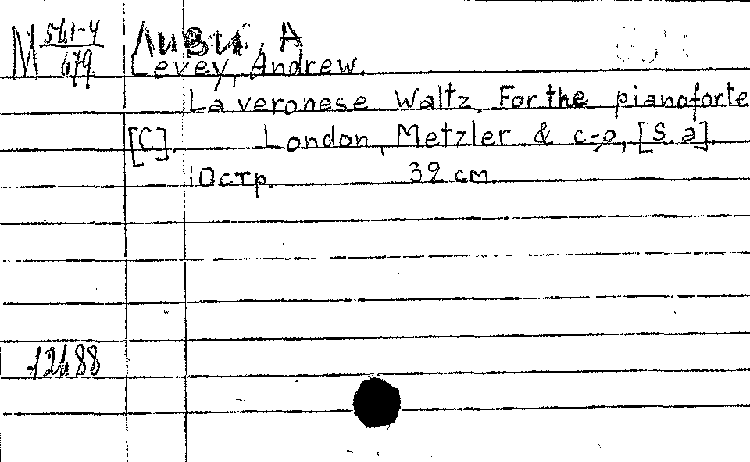 M 561-4/679 Ливи, А
Levey, Andrew.
La veronese Waltz. For the pianoforte
[C]. London, Metzler & c-o, [S. a].
10стр. 32 cm
12688